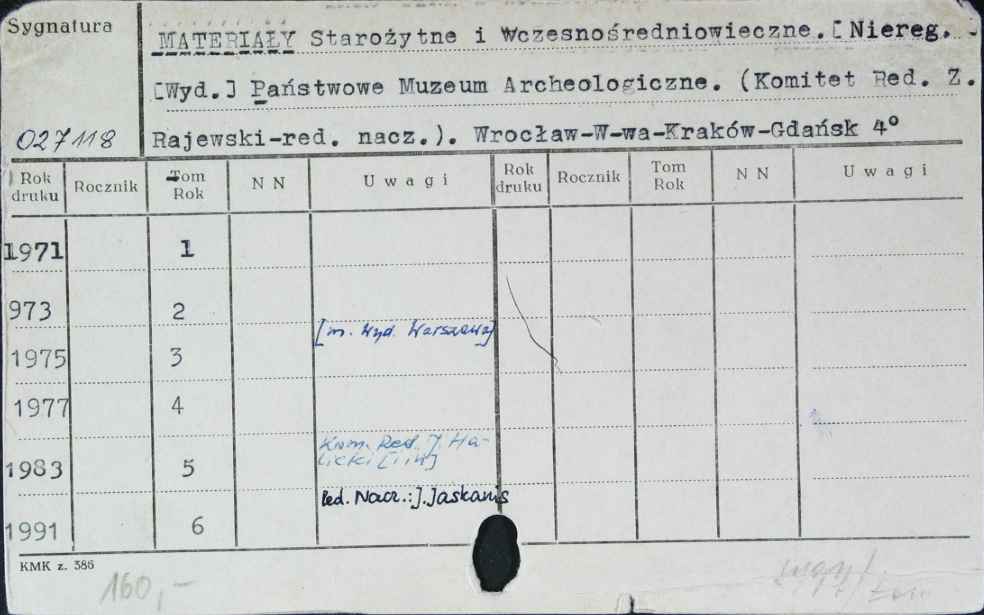 Sygnatura
MATERIAŁY Starożytne i Wczesnośredniowieczne.[Niereg.
[Wyd.] Państwowe Muzeum Archeologiczne. (Komitet Red. Z.
027118 Rajewski-red. nacz.). Wrocław-W-wa-Kraków-Gdańsk 4°
Rok druku Rocznik Tom Rok N N Uwagi Rok druku Rocznik Tom Rok N N Uwagi
1971 1
973 2
[m. Wyd. Warszawa]
1975 3
1977 4
Kom. Red. J. Ha-
licki [i in]
1983 5
Red. Nacz.: J. Jaskanis
1991 6
KMK z. 386
160,-